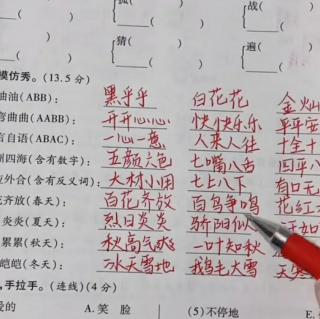 孤( 战(
( )
猜( ) 遍(
( )
模仿秀。(13.5分)
油油(ABB): 黑乎乎 白花花 金灿
弯曲曲(AABB): 开开心心 快快乐乐 平平安
言自语(ABAC): 一心一意 人来人往 十全十
四海(含有数字): 五颜六色 七嘴八舌 四平八
应外合(含有反义词): 大材小用 七上八下 有口无
花齐放(春天): 百花齐放 百鸟争鸣 花红
炎炎(夏天): 烈日炎炎 骄阳似 如
累累(秋天): 秋高气爽 一叶知秋
皑皑(冬天): 冰天雪地 鹅毛大雪 天寒
,手拉手。(连线)(4分)
爱的 A.笑 脸 (5)不停地 E.